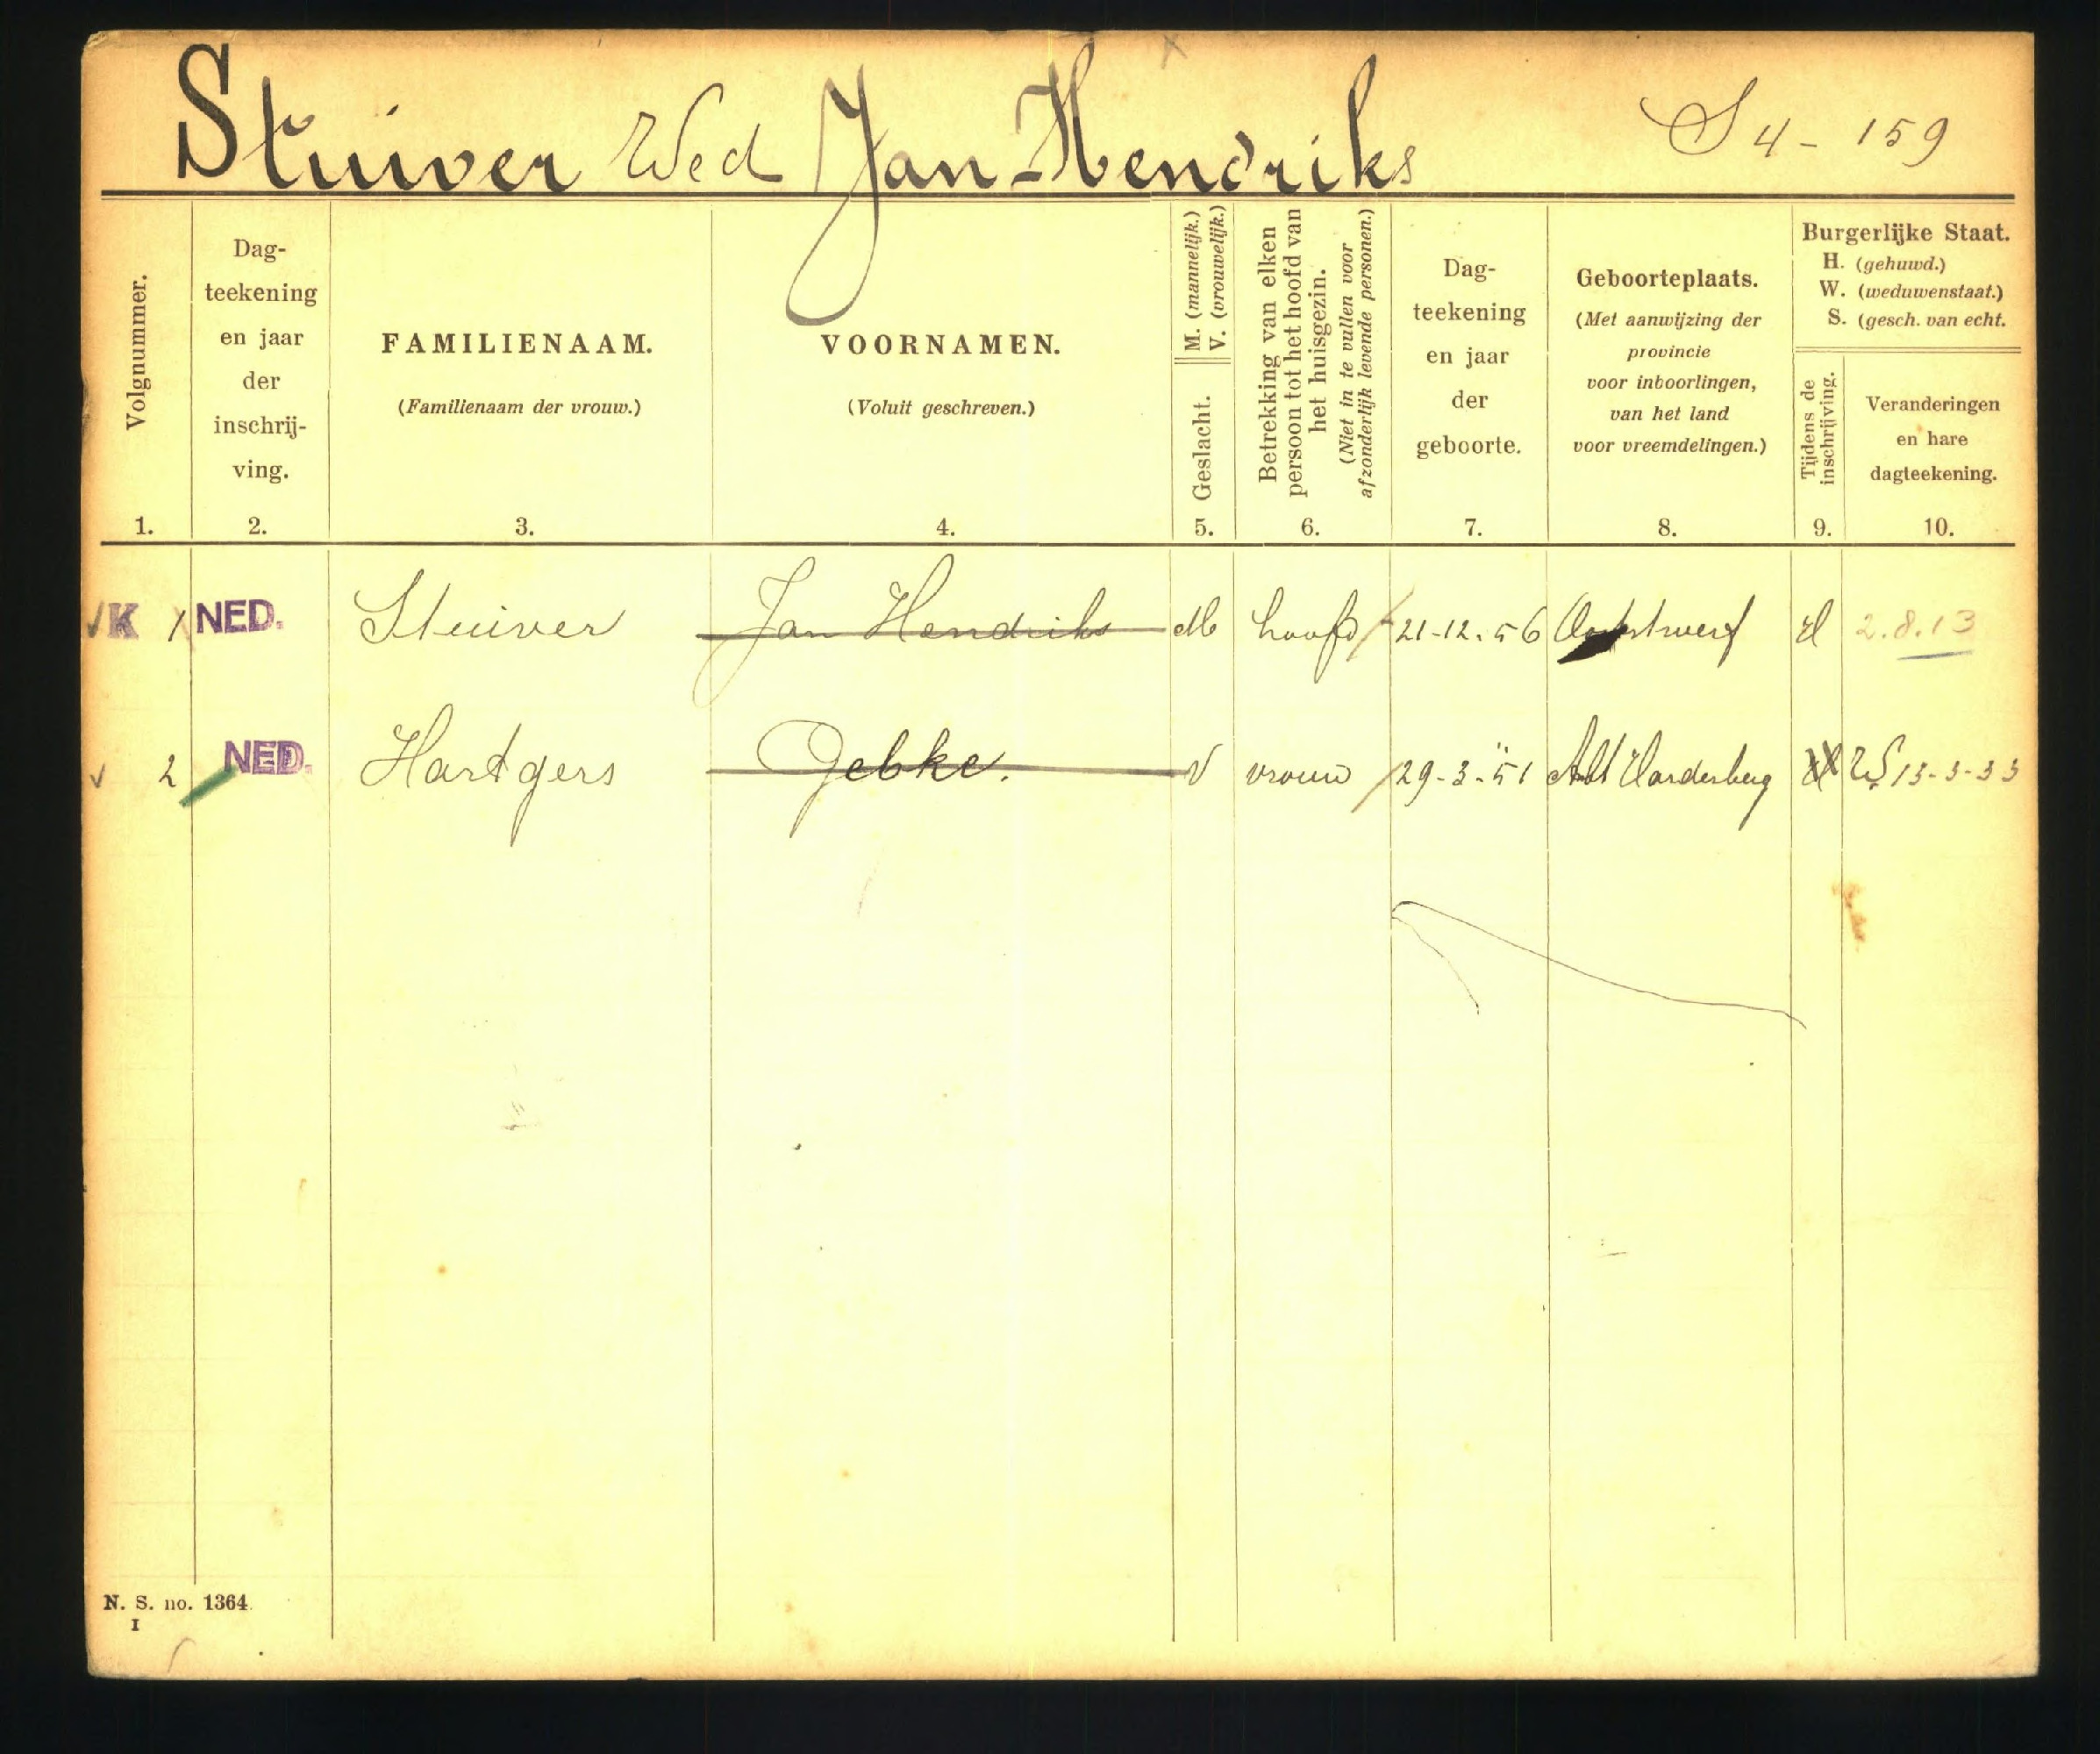 Stuiver Wed Jan Hendriks S 4 - 159
Volgnummer.
1.
Dag-
teekening
en jaar
der
inschrij-
ving.
2.
FAMILIENAAM.
(Familienaam der vrouw.)
3.
VOORNAMEN.
(Voluit geschreven.)
4.
M. (mannelijk.)
V. (vrouwelijk.)
Geslacht.
5.
Betrekking van elken
persoon tot het hoofd van
het huisgezin.
(Niet in te vullen voor
afzonderlijk levende personen.)
6.
Dag-
teekening
en jaar
der
geboorte.
7.
Geboorteplaats.
(Met aanwijzing der
provincie
voor inboorlingen,
van het land
voor vreemdelingen.)
8.
Burgerlijke Staat.
H. (gehuwd.)
W. (weduwenstaat.)
S. (gesch. van echt.
Tijdens de
inschrijving.
9.
Veranderingen
en hare
dagteekening.
10.
K 1 NED. Stuiver Jan Hendriks M hoofd 21-12-56 H 2.8.13
2 NED. Hartgers Gebke. V vrouw 29-3-51 Adt Hardenberg 13-3-33
N. S. no. 1364
I